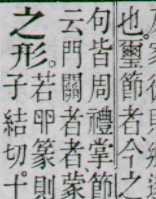 也。璽節者今之
句皆周禮掌節
云門關者者蒙
之形。
子結切。十
若卪篆則